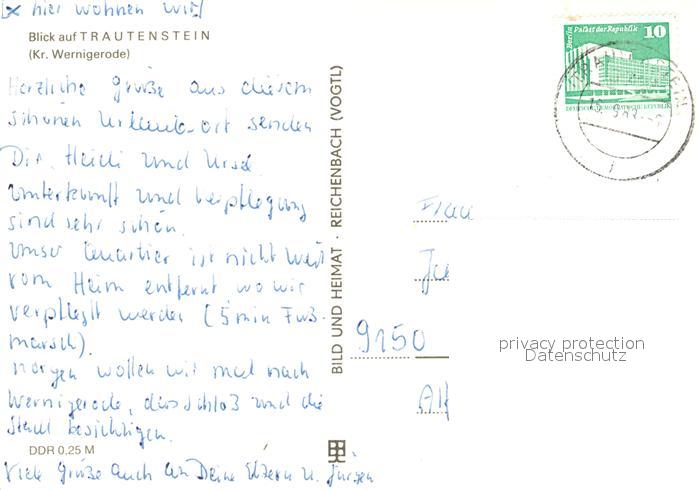 x hier wohnen wir!
Blick auf TRAUTENSTEIN
(Kr. Wernigerode)
Herzliche Grüße aus diesem
schönen Urlaubsort senden
Dir, Heidi und Ursel.
Unterkunft und Verpflegung
sind sehr schön.
Unser Quartier ist nicht weit
vom Heim entfernt wo wir
verpflegt werden (5 min Fuß-
marsch).
Morgen wollen wir mal nach
Wernigerode, das Schloß und die
Stadt besichtigen.
DDR 0,25 M
Viele Grüße auch an Deine Eltern u. Jürgen
BILD UND HEIMAT · REICHENBACH (VOGTL)
Berlin Palast der Republik 10
DEUTSCHE DEMOKRATISCHE REPUBLIK
Frau
9150
privacy protection
Datenschutz